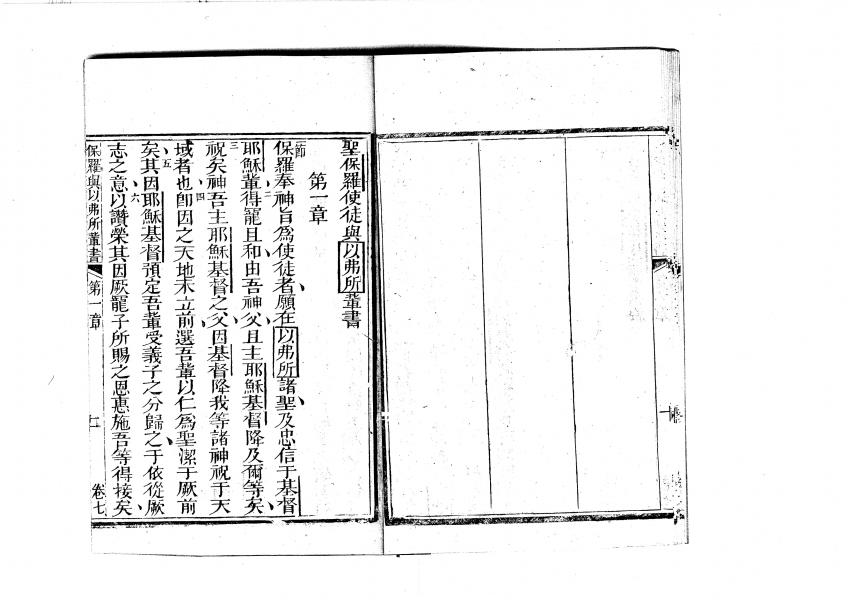 聖保羅使徒與以弗所軰書
第一章
一節保羅奉神旨為使徒者願在以弗所諸聖及忠信于基督
耶穌軰得寵且和由吾神父且主耶穌基督降及爾等矣
三祝矣神吾主耶穌基督之父因基督降我等諸神祝于天
域者也四即因之天地未立前選吾軰以仁為聖潔于厥前
矣五其因耶穌基督預定吾軰受義子之分歸之于依從厥
志之意六以讚榮其因厥寵子所賜之恩惠施吾等得接矣
保羅與以弗所軰書 第一章 卷七